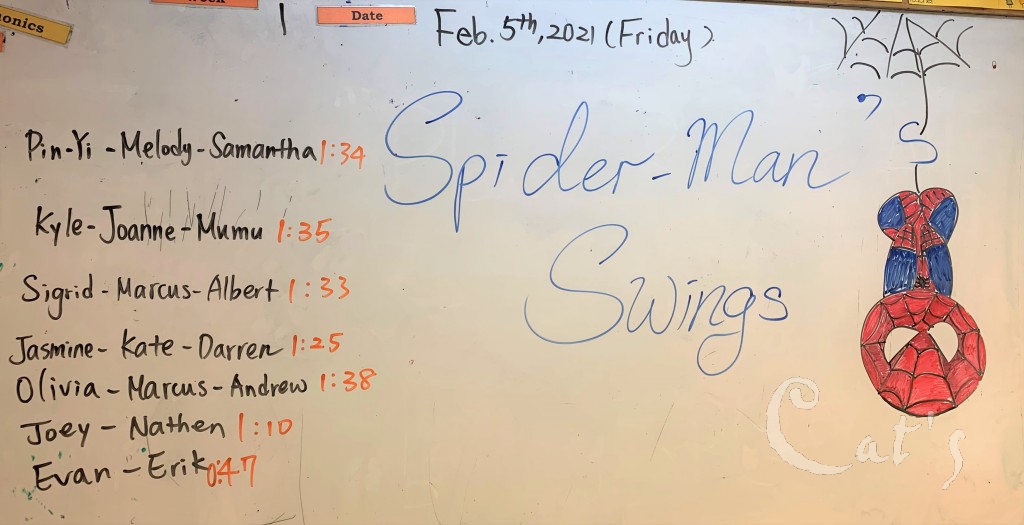 onics
Week
Date
Feb. 5th, 2021 (Friday)
Pin-Yi - Melody - Samantha 1:34
Kyle - Joanne - Mumu 1:35
Sigrid - Marcus - Albert 1:33
Jasmine - Kate - Darren 1:25
Olivia - Marcus - Andrew 1:38
Joey - Nathen 1:10
Evan - Erik 0:47
Spider-Man's
Swings
Cat's